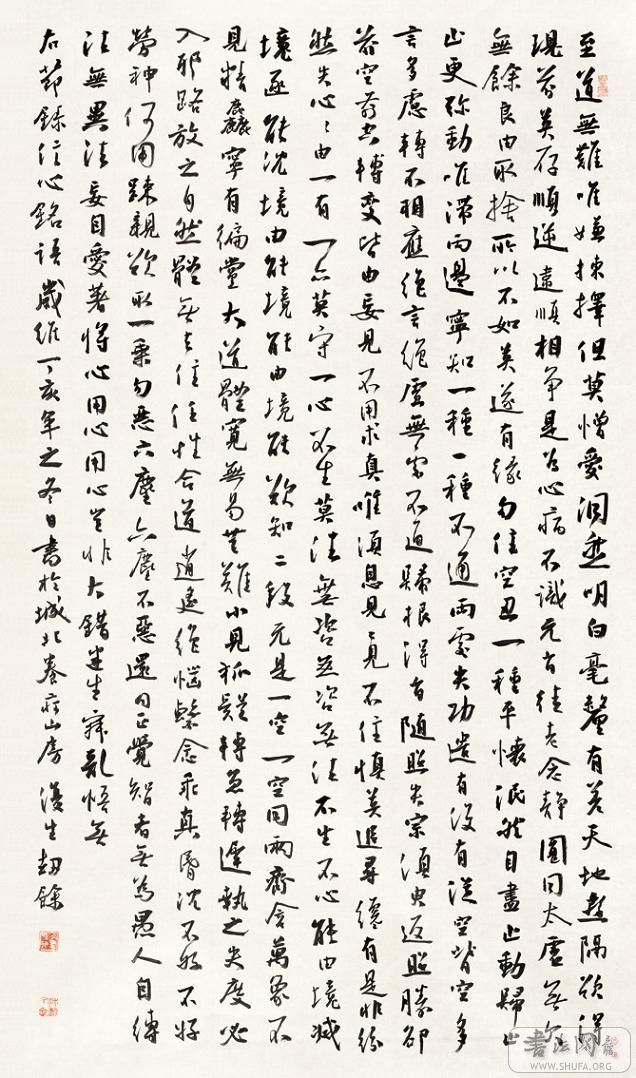 至道無難唯嫌揀擇但莫憎愛洞然明白毫釐有差天地懸隔欲得
現前莫存順逆違順相爭是為心病不識元旨徒勞念靜圓同太虛無欠
無餘良由取捨所以不如莫逐有緣勿住空忍一種平懷泯然自盡止動歸止
止更彌動唯滯兩邊寧知一種一種不通兩處失功遣有沒有從空背空多
言多慮轉不相應絕言絕慮無處不通歸根得旨隨照失宗須臾返照勝卻
前空前空轉變皆由妄見不用求真唯須息見二見不住慎莫追尋纔有是非紛
然失心二由一有一亦莫守一心不生萬法無咎無咎無法不生不心能由境滅
境逐能沈境由能境能由境能欲知二段元是一空一空同兩齊含萬象不
見精麤寧有偏黨大道體寬無易無難小見狐疑轉急轉遲執之失度必
入邪路放之自然體無去住任性合道逍遙絕惱繫念乖真昏沈不好不好
勞神何用疎親欲取一乘勿惡六塵六塵不惡還同正覺智者無為愚人自縛
法無異法妄自愛著將心用心用心豈非大錯迷生寂亂悟無
右節錄信心銘語歲維丁亥年之冬日書於城北山房漢生劫餘
书法网
WWW.SHUFA.ORG